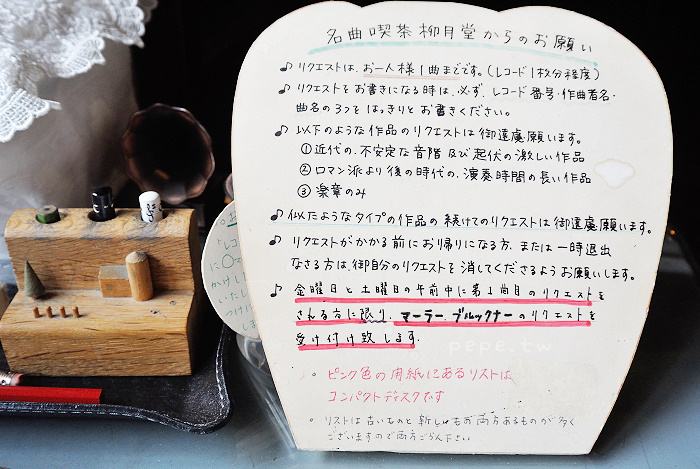 名曲喫茶 柳月堂からのお願い
♪ リクエストは、お一人様1曲までです。(レコード1枚分程度)
♪ リクエストをお書きになる時は、必ず、レコード番号・作曲者名・
曲名の3つをはっきりとお書きください。
♪ 以下のような作品のリクエストは御遠慮願います。
①近代の、不安定な音階及び起伏の激しい作品
②ロマン派より後の時代の、演奏時間の長い作品
③楽章のみ
♪ 似たようなタイプの作品の続けてのリクエストは御遠慮願います。
♪ リクエストがかかる前にお帰りになる方、または一時退出
なさる方は、御自分のリクエストを消してくださるようお願いします。
♪ 金曜日と土曜日の午前中に第1曲目のリクエストを
される方に限り、マーラー、ブルックナーのリクエストを
受け付け致します。
・ピンク色の用紙にあるリストは
コンパクトディスクです
・リストは古いものと新しいもの両方あるものが多く
ございますので両方ごらん下さい
pepe.tw